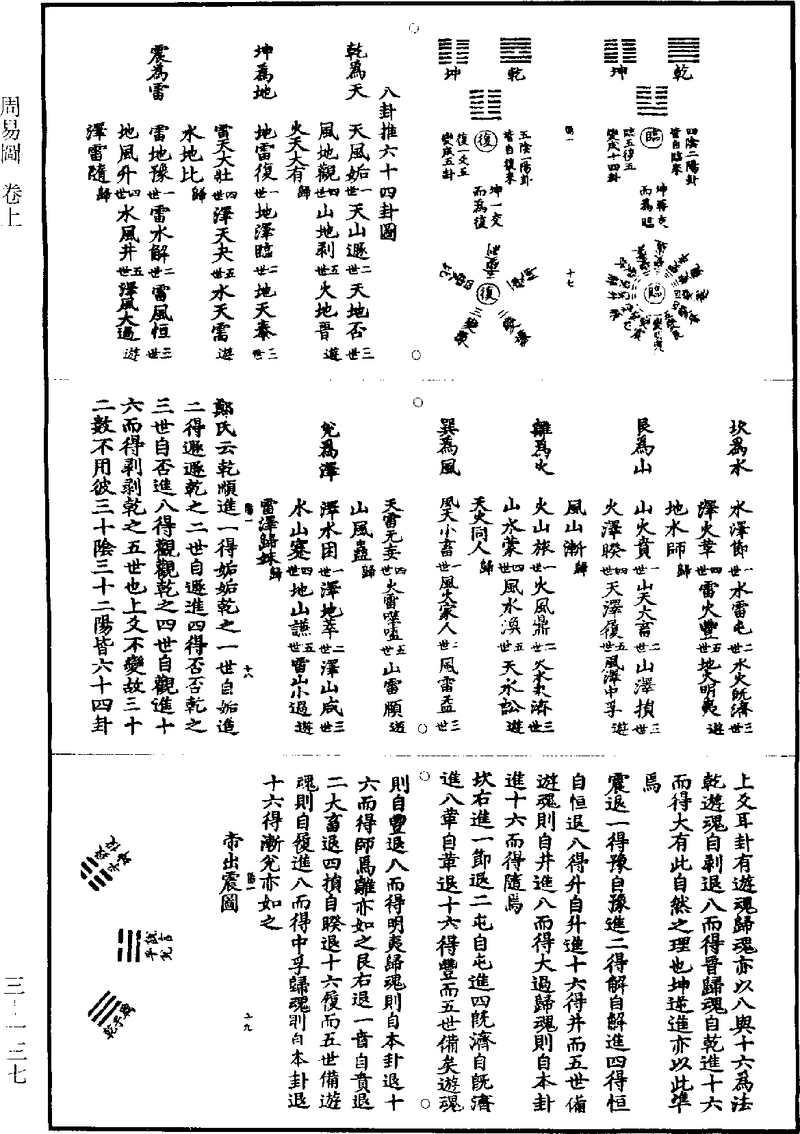 乾
坤
四陰二陽卦
皆自臨來
臨
臨五復五
變成十四卦
坤再交
而為臨
臨
易一
十七
乾
坤
五陰一陽卦
皆自復來
復
復一交五
變成五卦
坤一交
而為復
復
八卦推六十四卦圖
乾為天 天風姤一世 天山遯二世 天地否三世
風地觀四世 山地剥五世 火地晉遊
火天大有歸
坤為地 地雷復一世 地澤臨二世 地天泰三世
雷天大壯四世 澤天夬五世 水天需遊
水地比歸
震為雷 雷地豫一世 雷水解二世 雷風恒三世
地風升四世 水風井五世 澤風大過遊
澤雷隨歸
坎為水 水澤節一世 水雷屯二世 水火既濟三世
澤火革四世 雷火豐五世 地火明夷遊
地水師歸
艮為山 山火賁一世 山天大畜二世 山澤損三世
火澤睽四世 天澤履五世 風澤中孚遊
風山漸歸
離為火 火山旅一世 火風鼎二世 火水未濟三世
山水蒙四世 風水渙五世 天水訟遊
天火同人歸
巽為風 風天小畜一世 風火家人二世 風雷益三世
天雷无妄四世 火雷噬嗑五世 山雷頤遊
山風蠱歸
兌為澤 澤水困一世 澤地萃二世 澤山咸三世
水山蹇四世 地山謙五世 雷山小過遊
雷澤歸妹歸
易一
十八
鄭氏云乾順進一得姤姤乾之一世自姤進
二得遯遯乾之二世自遯進四得否否乾之
三世自否進八得觀觀乾之四世自觀進十
六而得剥剥乾之五世也上爻不變故三十
二數不用彼三十陰三十二陽皆六十四卦
上爻耳卦有遊魂歸魂亦以八與十六為法
乾遊魂自剥退八而得晉歸魂自乾進十六
而得大有此自然之理也坤逆進亦以此準
焉
震退一得豫自豫進二得解自解進四得恒
自恒退八得升自升進十六得井而五世備
遊魂則自井進八而得大過歸魂則自本卦
進十六而得隨焉
坎右進一節退二屯自屯進四既濟自既濟
進八革自革退十六得豐而五世備矣遊魂
則自豐退八而得明夷歸魂則自本卦退十
六而得師焉離亦如之艮右退一賁自賁退
二大畜退四損自睽退十六履而五世備遊
魂則自履進八而得中孚歸魂則自本卦退
十六得漸兌亦如之
易一
十九
帝出震圖
戰乎乾
周易圖 卷上
三-一三七